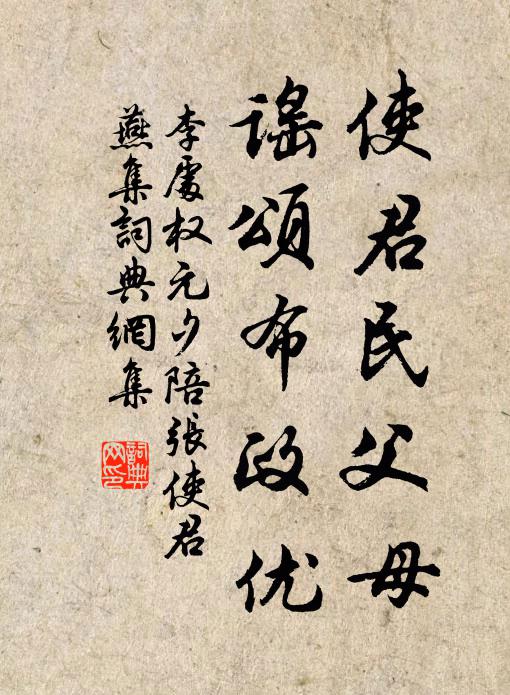 使君民父母
谣颂布政优
李處权元夕陪張使君
燕集詞典網集
詞典网印